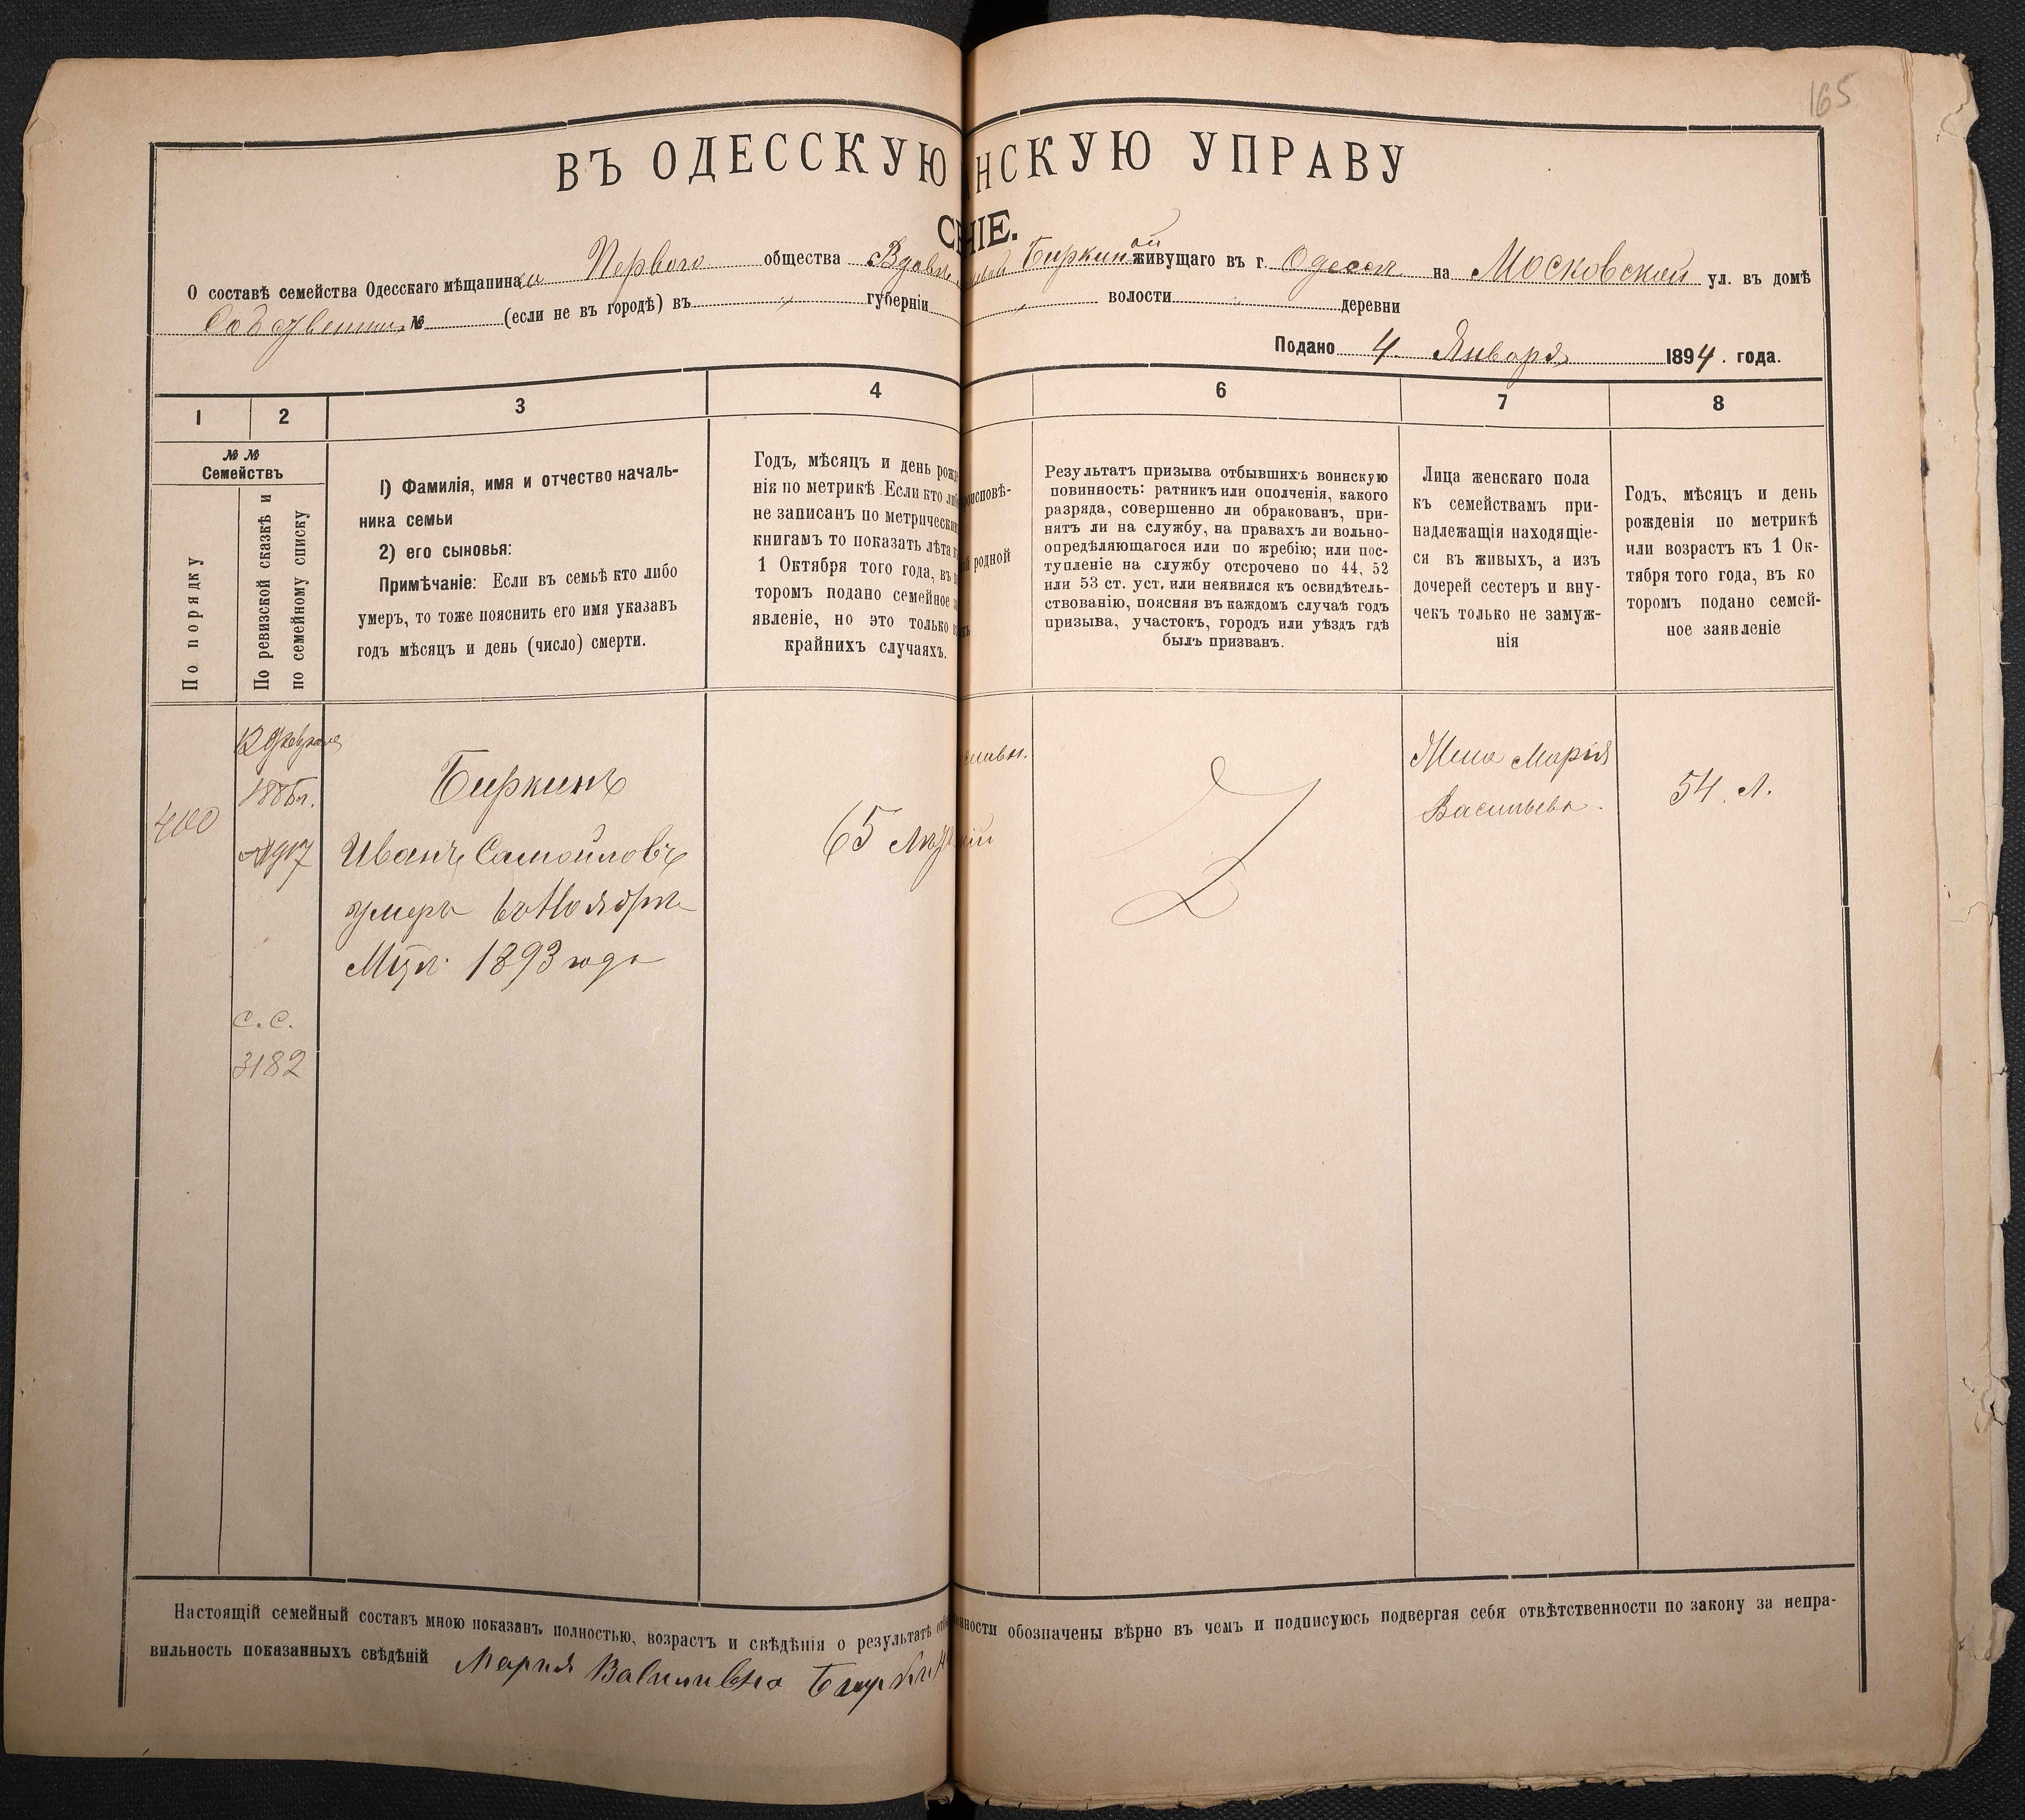 165
ВЪ ОДЕССКУЮ НСКУЮ УПРАВУ
НІЕ.
О составѣ семейства Одесскаго мѣщанина Перваго общества Вдовы Биркиной живущаго въ г. Одессѣ на Московской ул. въ домѣ
Собственн. № (если не въ городѣ) въ губерніи волости деревни
Подано 4 Января 1894 года.
1 2 3 4 6 7 8
№ № Семействъ
По порядку
По ревизской сказкѣ и
по семейному списку
1) Фамилія, имя и отчество началь-
ника семьи
2) его сыновья:
Примѣчаніе: Если въ семьѣ кто либо
умеръ, то тоже пояснить его имя указавъ
годъ мѣсяцъ и день (число) смерти.
Годъ, мѣсяцъ и день рожде
нія по метрикѣ. Если кто либ
не записанъ по метрически
книгамъ то показать лѣта
1 Октября того года, въ
торомъ подано семейное
явленіе, но это только
крайнихъ случаяхъ.
роисповѣ-
родной
Результатъ призыва отбывшихъ воинскую
повинность: ратникъ или ополченія, какого
разряда, совершенно ли обракованъ, при-
нятъ ли на службу, на правахъ ли вольно-
опредѣляющагося или по жребію; или пос-
тупленіе на службу отсрочено по 44, 52
или 53 ст. уст. или неявился къ освидѣтель-
ствованію, поясняя въ каждомъ случаѣ годъ
призыва, участокъ, городъ или уѣздъ гдѣ
былъ призванъ.
Лица женскаго пола
къ семействамъ при-
надлежащія находящіе-
ся въ живыхъ, а изъ
дочерей сестеръ и вну-
чекъ только не замуж-
нія
Годъ, мѣсяцъ и день
рожденія по метрикѣ
или возрастъ къ 1 Ок-
тября того года, въ ко
торомъ подано семей-
ное заявленіе
400
12 Февраля
1886 г.
№ 1917
с.с.
3182
Биркинъ
Иванъ Самойловъ
умеръ въ Ноябрѣ
М-цѣ 1893 года
65 лѣтъ
славн.
кій
Жена Марія
Васильева
54 л.
Настоящій семейный составъ мною показанъ полностью, возрастъ и свѣдѣнія о результатѣ отбы нности обозначены вѣрно въ чемъ и подписуюсь подвергая себя отвѣтственности по закону за непра-
вильность показанныхъ свѣдѣній Мария Василивна Биркин